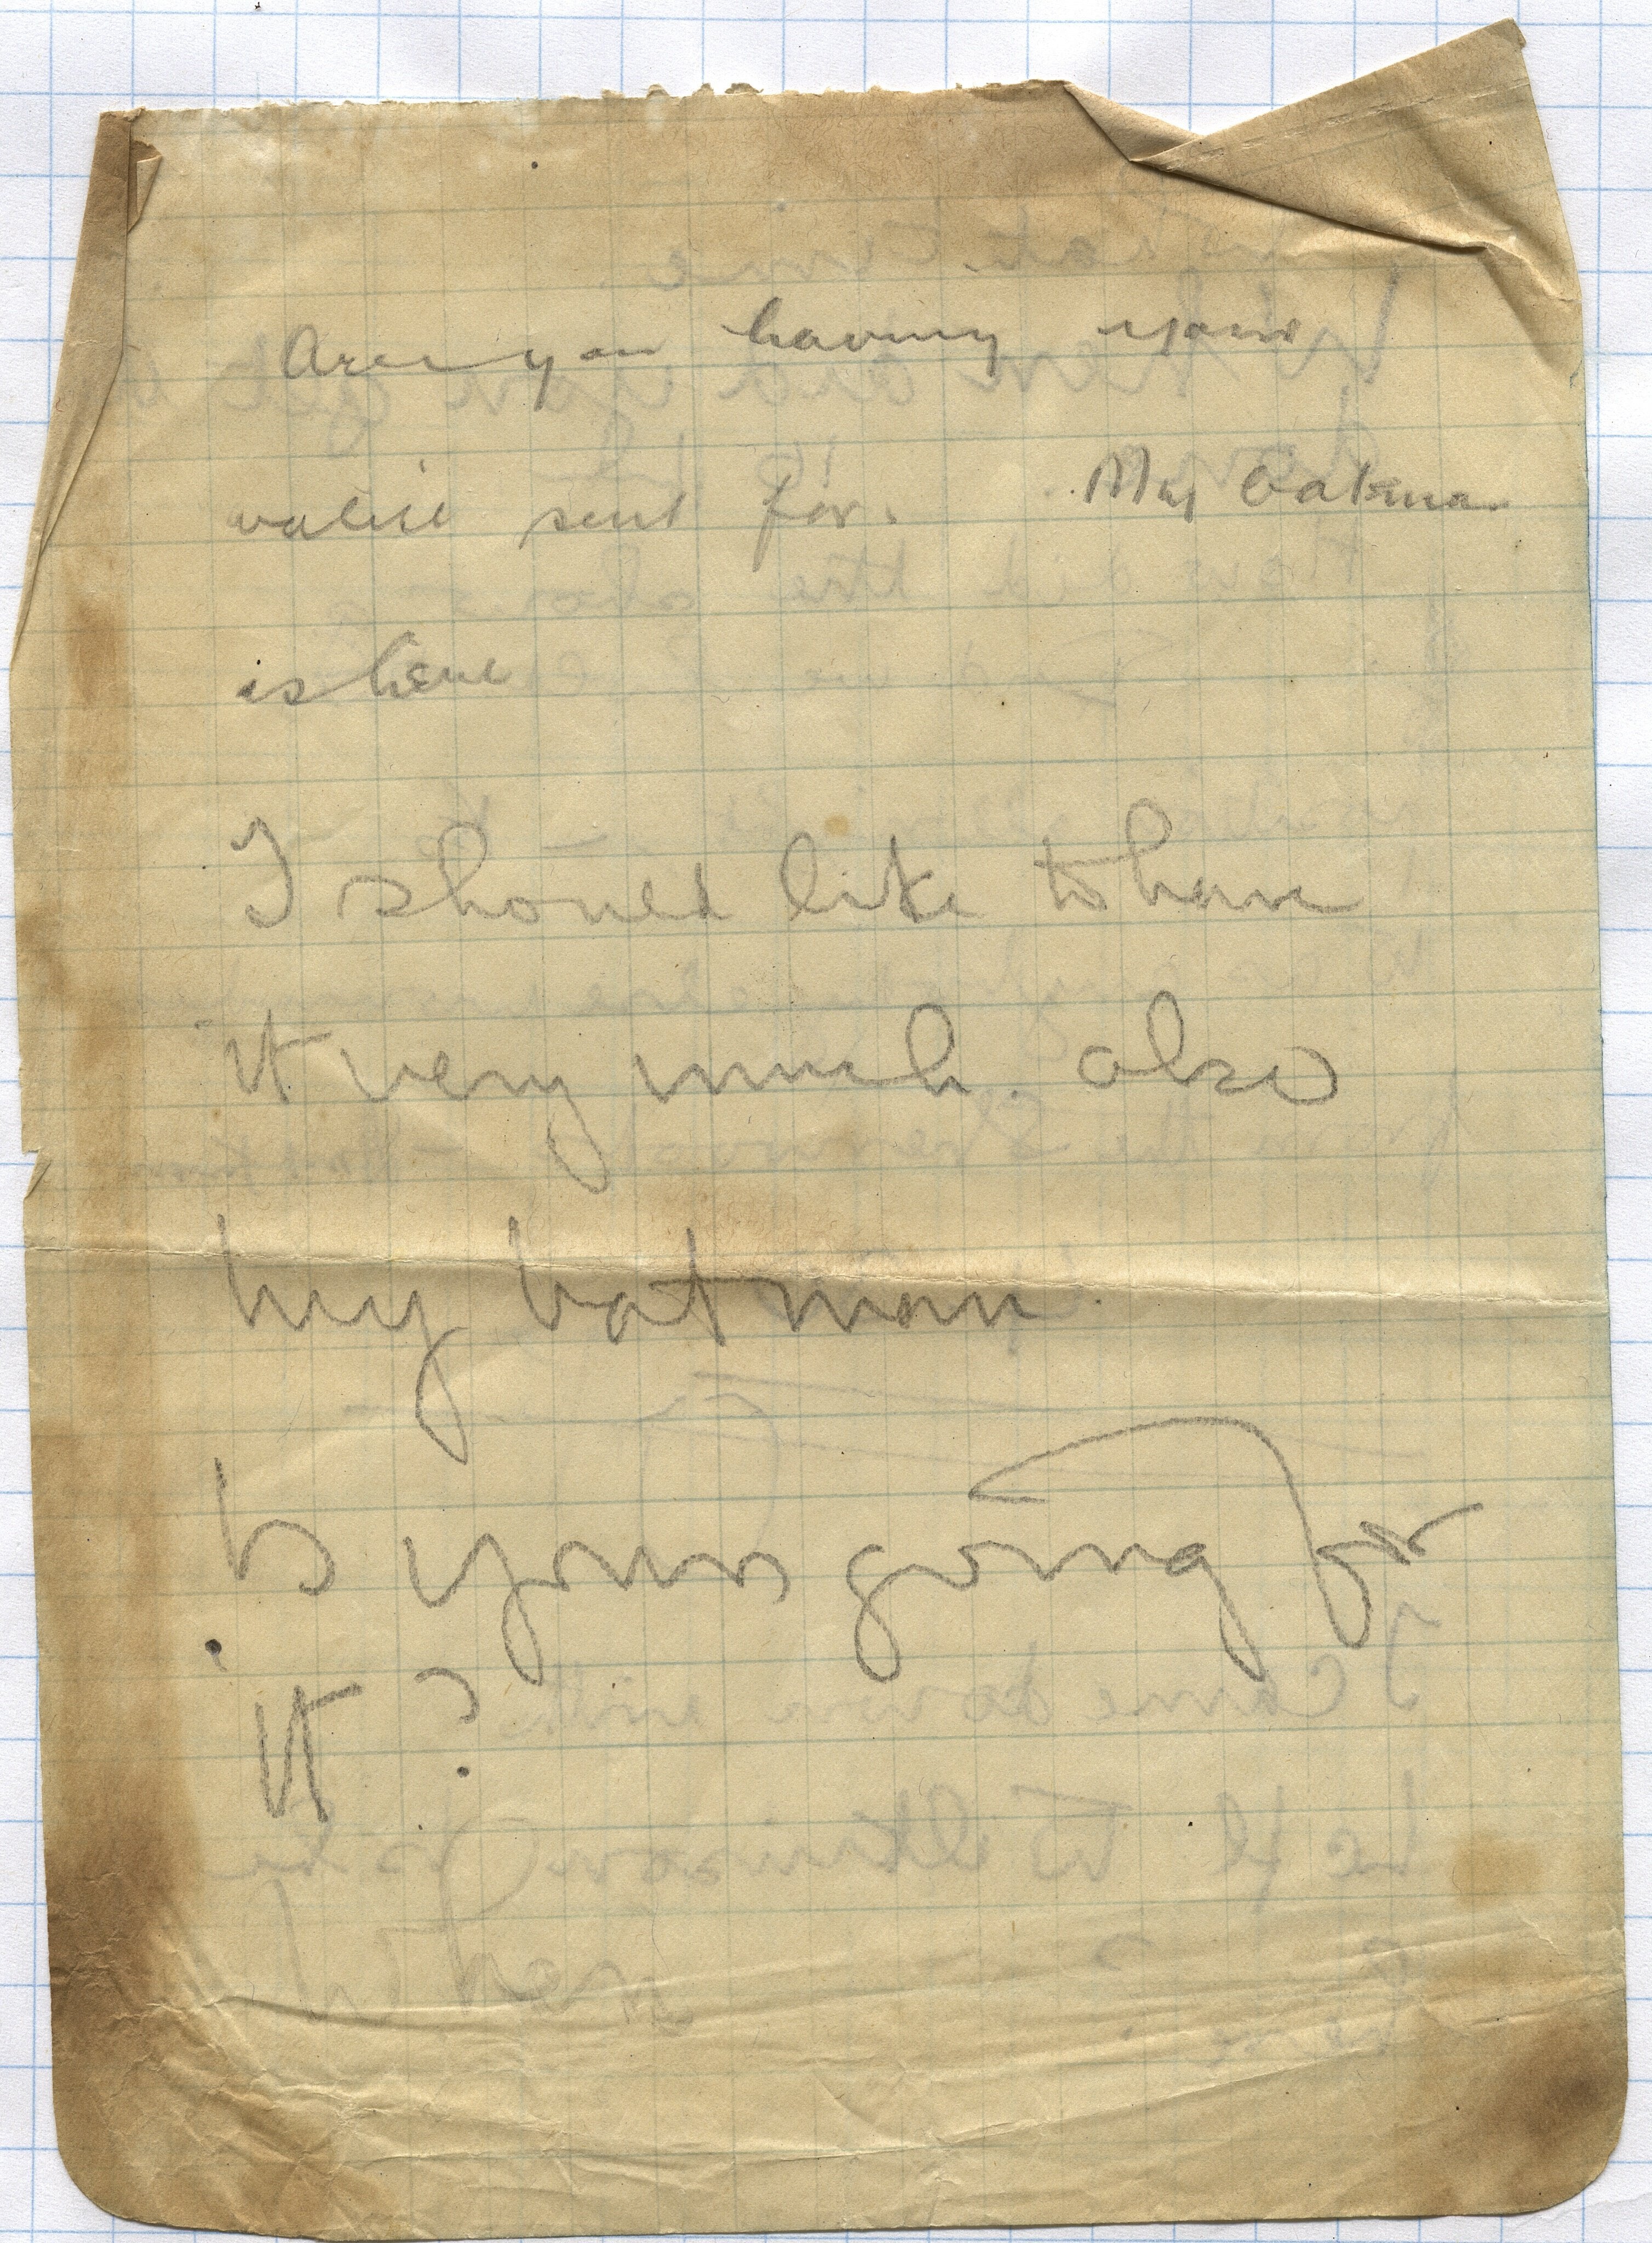 Are you having your
valise sent for. My batman
is here
I should like to have
it very much. also
my batman.
Is yours going for
it?